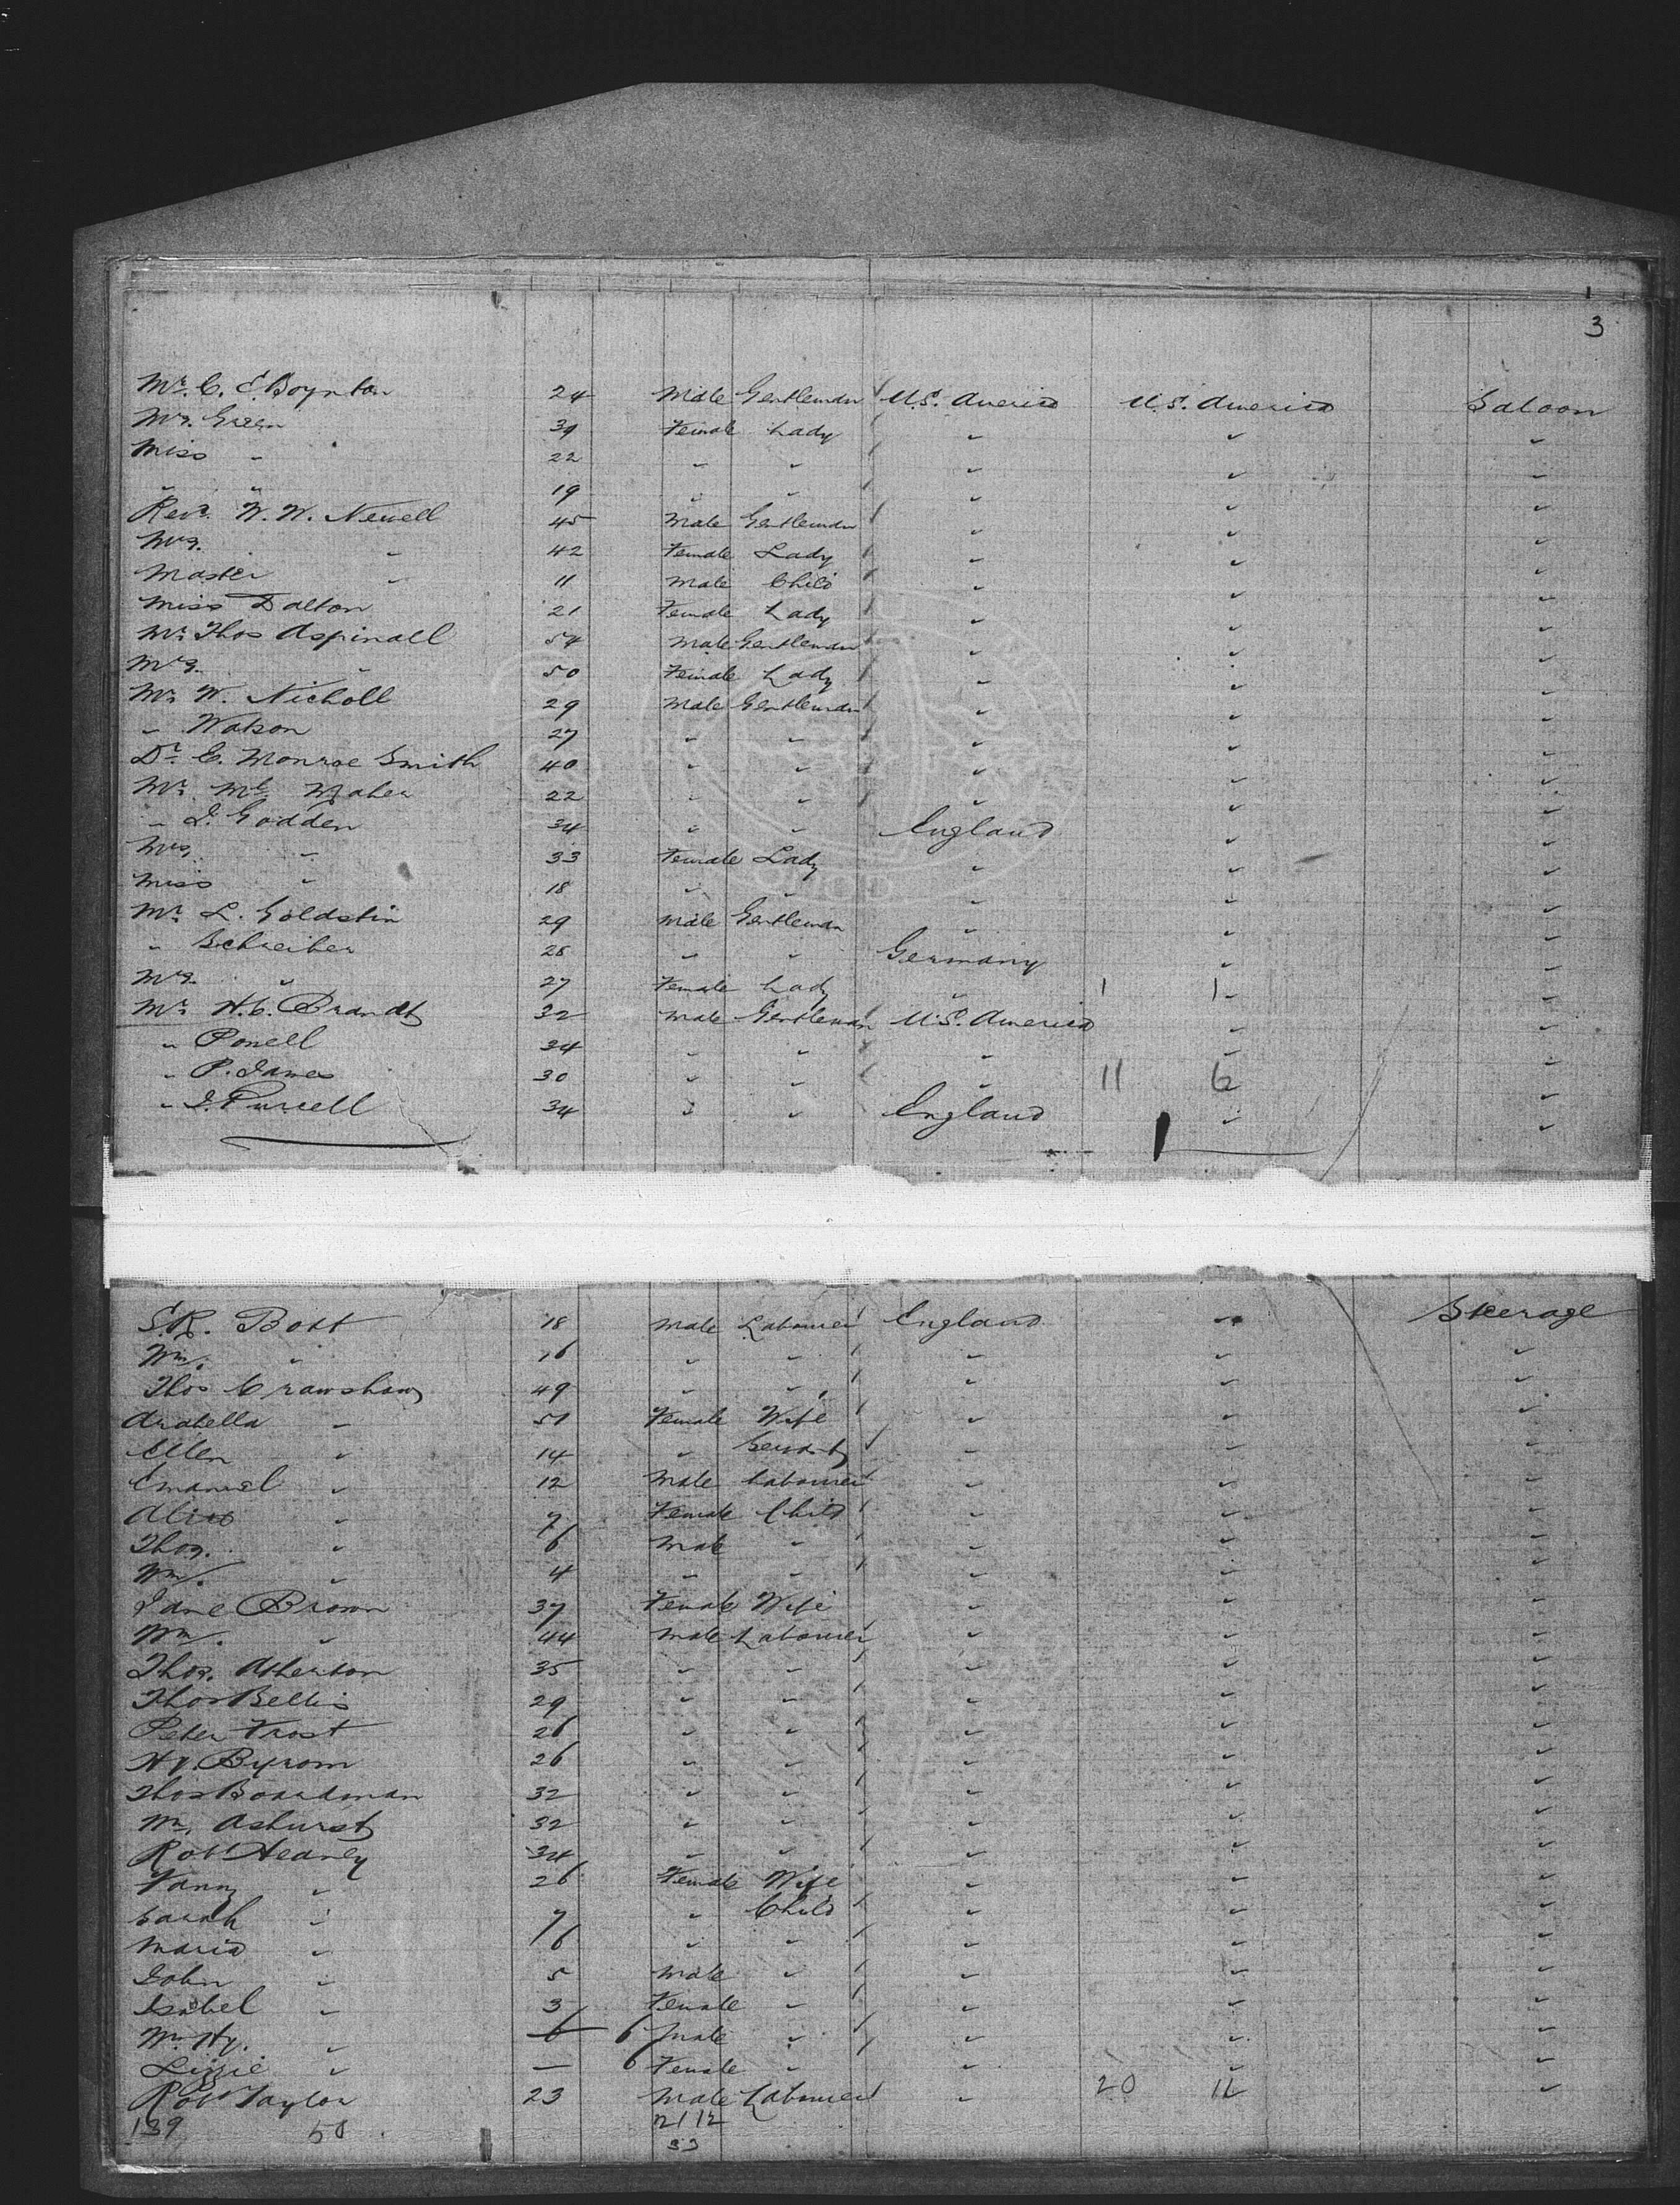 3
Mr. C. E. Boynton 24 Male Gentleman U.S. America U.S. America Saloon
Mrs. Green 39 Female Lady " " "
Miss " 22 " " " " "
" " 19 " " " " "
Revd. W. W. Newell 45 Male Gentleman " " "
Mrs. " 42 Female Lady " " "
Master " 11 Male Child " " "
Miss Dalton 21 Female Lady " " "
Mr. Thos Aspinall 54 Male Gentleman " " "
Mrs. " 50 Female Lady " " "
Mr. W. Nicholl 29 Male Gentleman " " "
" Watson 27 " " " " "
Dr. E. Monroe Smith 40 " " " " "
Mr. Maher 22 " " " " "
" J. Godden 34 " " England " "
Mrs. " 33 Female Lady " " "
Miss " 18 " " " " "
Mr. L. Goldstin 29 Male Gentleman " " "
" Schreiber 28 " " Germany " "
Mrs. " 27 Female Lady " 1 1 " "
Mr. H. C. Brandt 32 Male Gentleman U.S. America " "
" Powell 34 " " " " "
" P. James 30 " " " 11 6 "
" J. Purcell 34 " " England " "
S. R. Bott 18 Male Labourer England " Steerage
Wm. " 16 " " " " "
Thos Crawshaw 49 " " " " "
Arabella " 51 Female Wife " " "
Ellen " 14 " Servant " " "
Emanuel " 12 Male Labourer " " "
Alice " 7 Female Child " " "
Thos. " 6 Male " " " "
Wm. " 4 " " " " "
Jane Brown 37 Female Wife " " "
Wm. " 44 Male Labourer " " "
Thos. Atherton 35 " " " " "
Thos Bellis 29 " " " " "
Peter Frost 26 " " " " "
Hy. Byrom 26 " " " " "
Thos Boardman 32 " " " " "
Wm. Ashurst 32 " " " " "
Robt Heaney 34 " " " " "
Fanny " 26 Female Wife " " "
Sarah " 7 " Child " " "
Maria " 6 " " " " "
John " 5 Male " " " "
Isabel " 3 Female " " " "
Wm. Hy. " 6 6 Male " " " "
Lizzie " — 6 Female " " " "
Robt Taylor 23 Male Labourer " 20 12 "
139 50 21 12
33